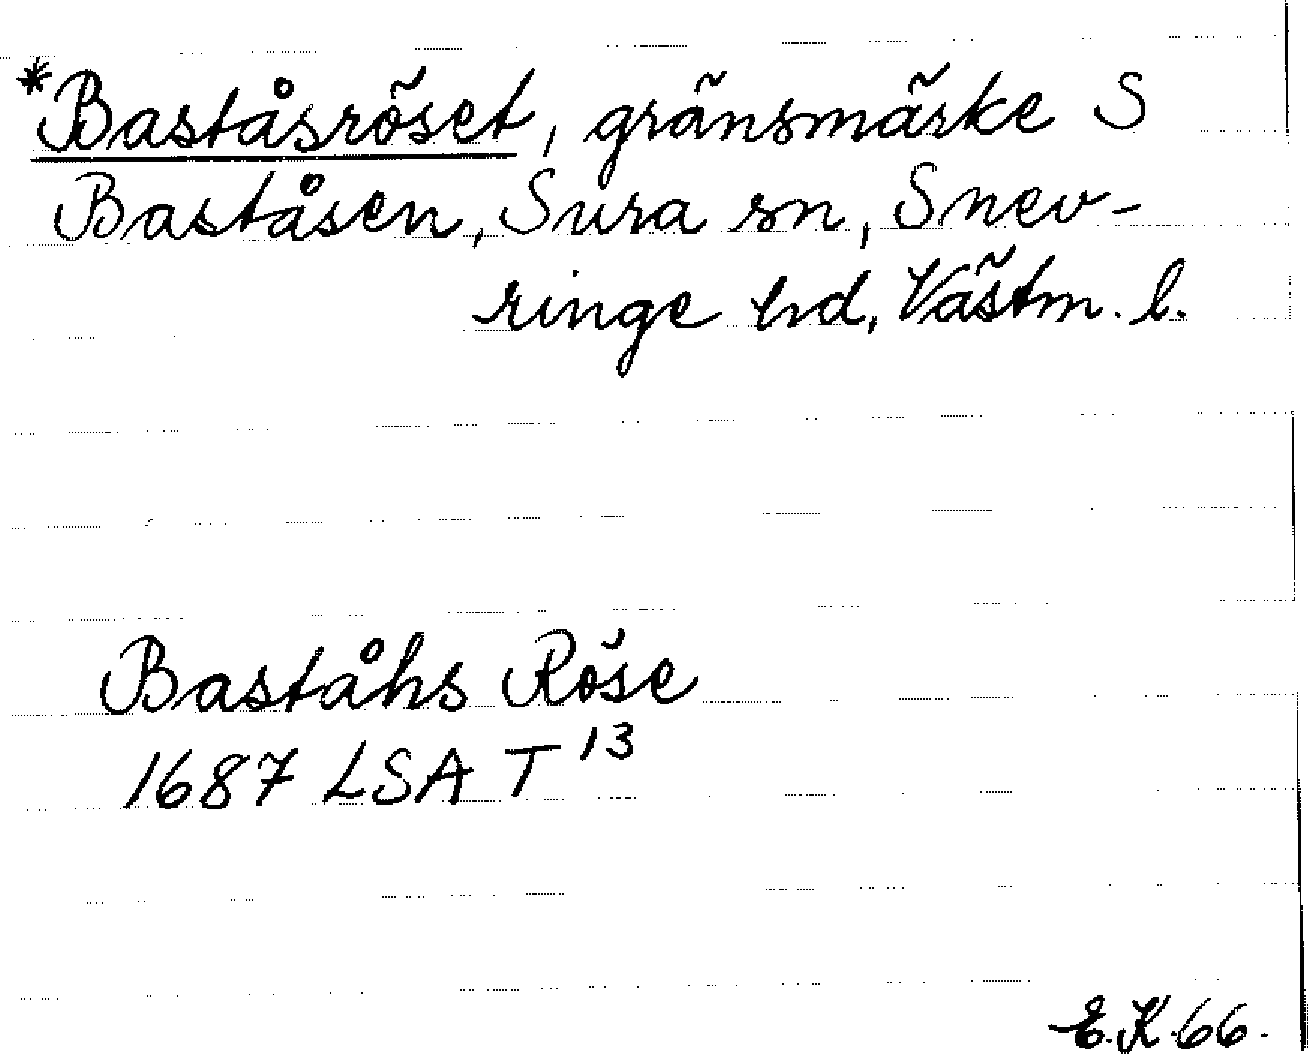 *Baståsröset, gränsmärke S
Baståsen, Sura sn, Snev-
ringe hd, Västm. l.
Baståhs Röse
1687 LSA T 13
E.K. 66.